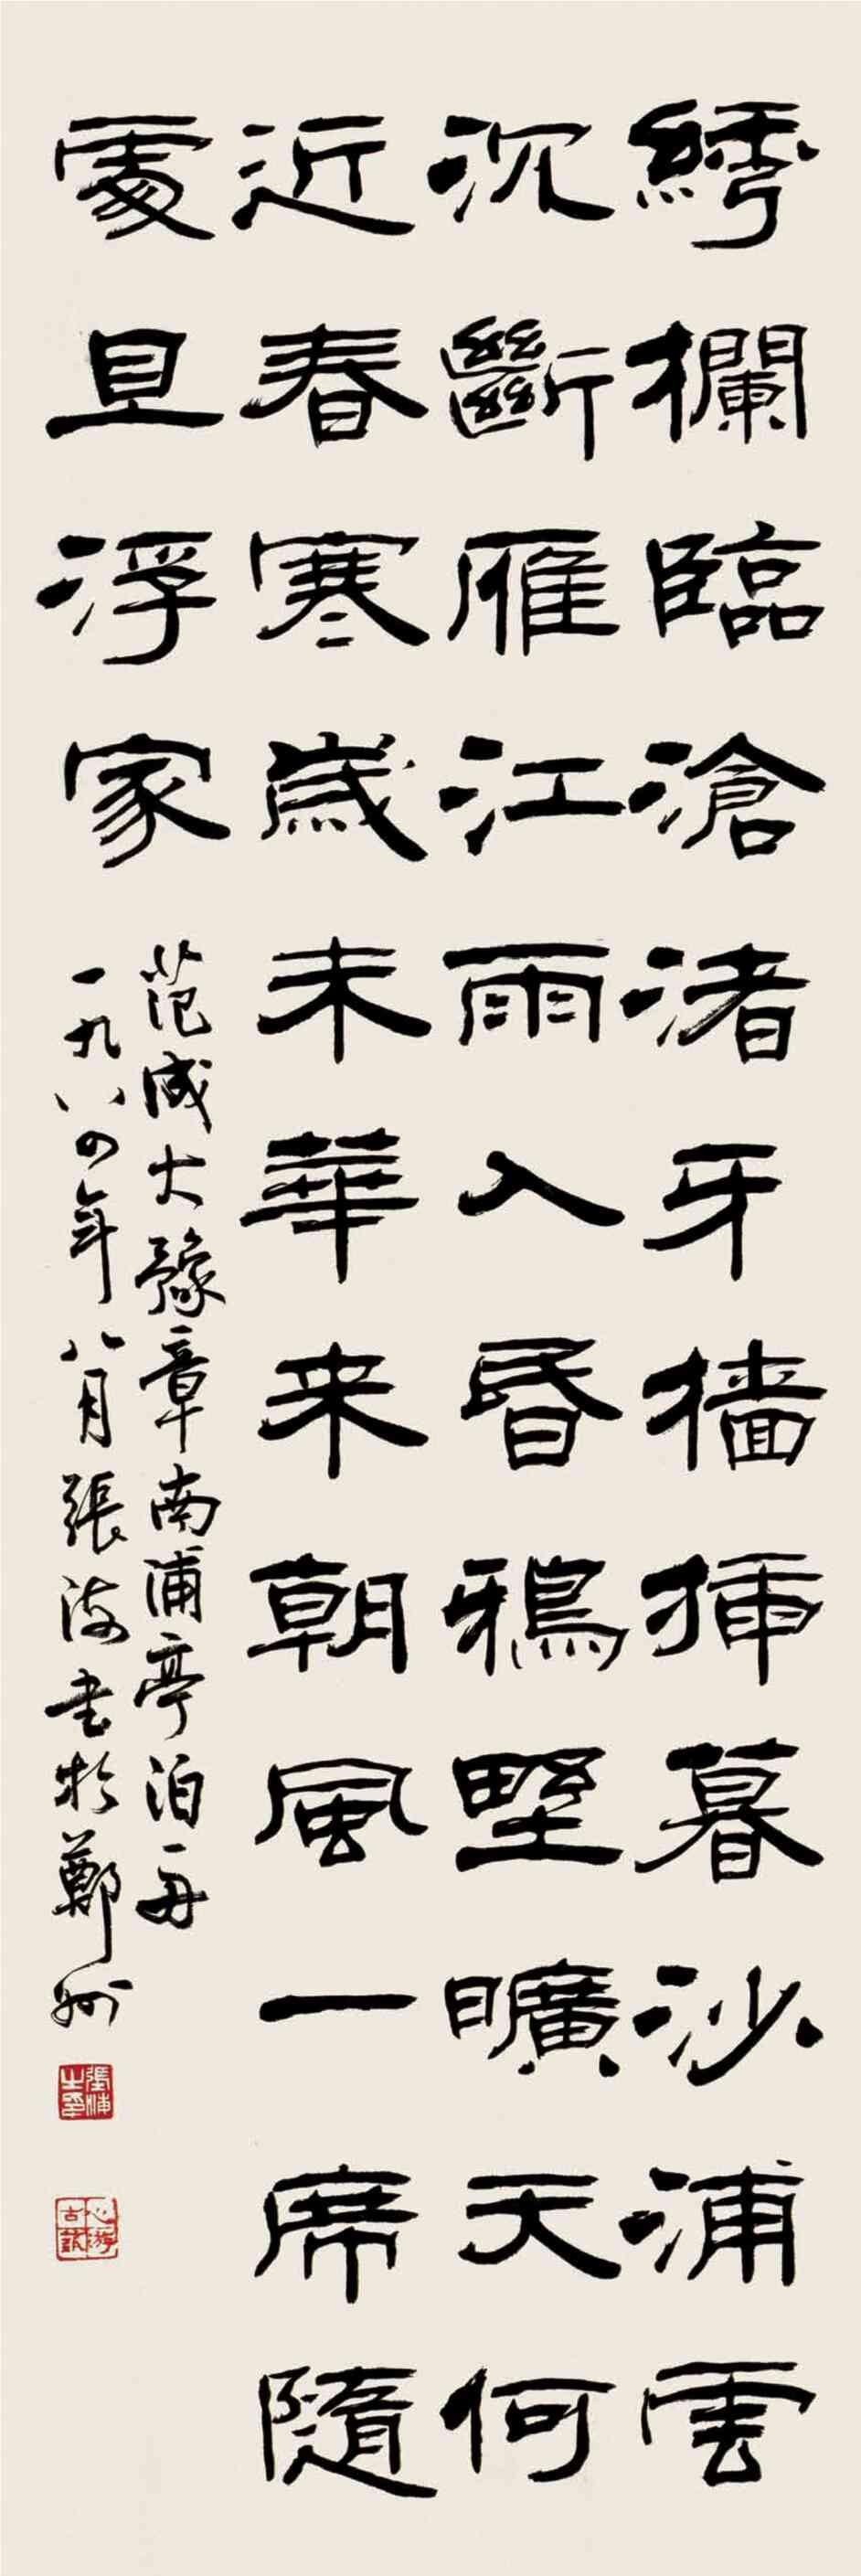 繡欄臨滄渚牙檣插暮沙浦雲
沉斷雁江雨入昬鴉野曠天何
近春寒歲未華来朝風一席隨
處且浮家
范成大豫章南浦亭泊舟
一九八四年八月張海書於鄭州
張海之印